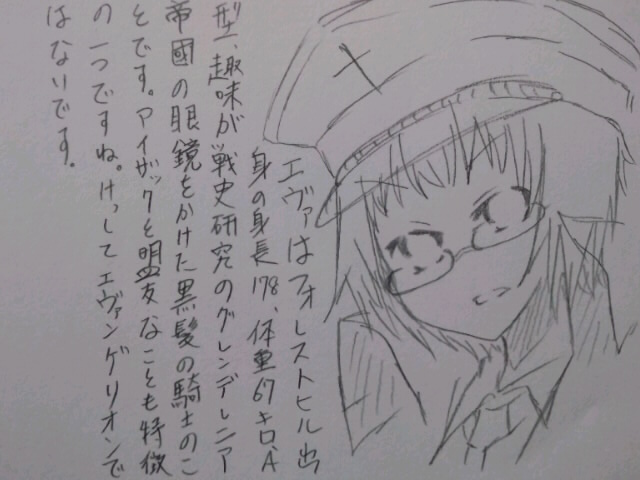 エヴァはフォレストヒル出
身の身長178、体重67キロ、A
型、趣味が戦史研究のグレンデレニア
帝國の眼鏡をかけた黒髪の騎士のこ
とです。アイザックと盟友なことも特徴
の一つですね。けっしてエヴァンゲリオンで
はないです。